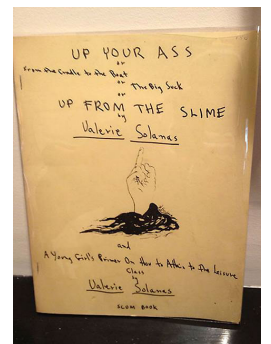 UP YOUR ASS
or
From the Cradle to the Boat
or The Big Suck
or
UP FROM THE SLIME
by
Valerie Solanas
and
A Young Girl's Primer On How to Attain to The Leisure
Class
by
Valerie Solanas
SCUM BOOK